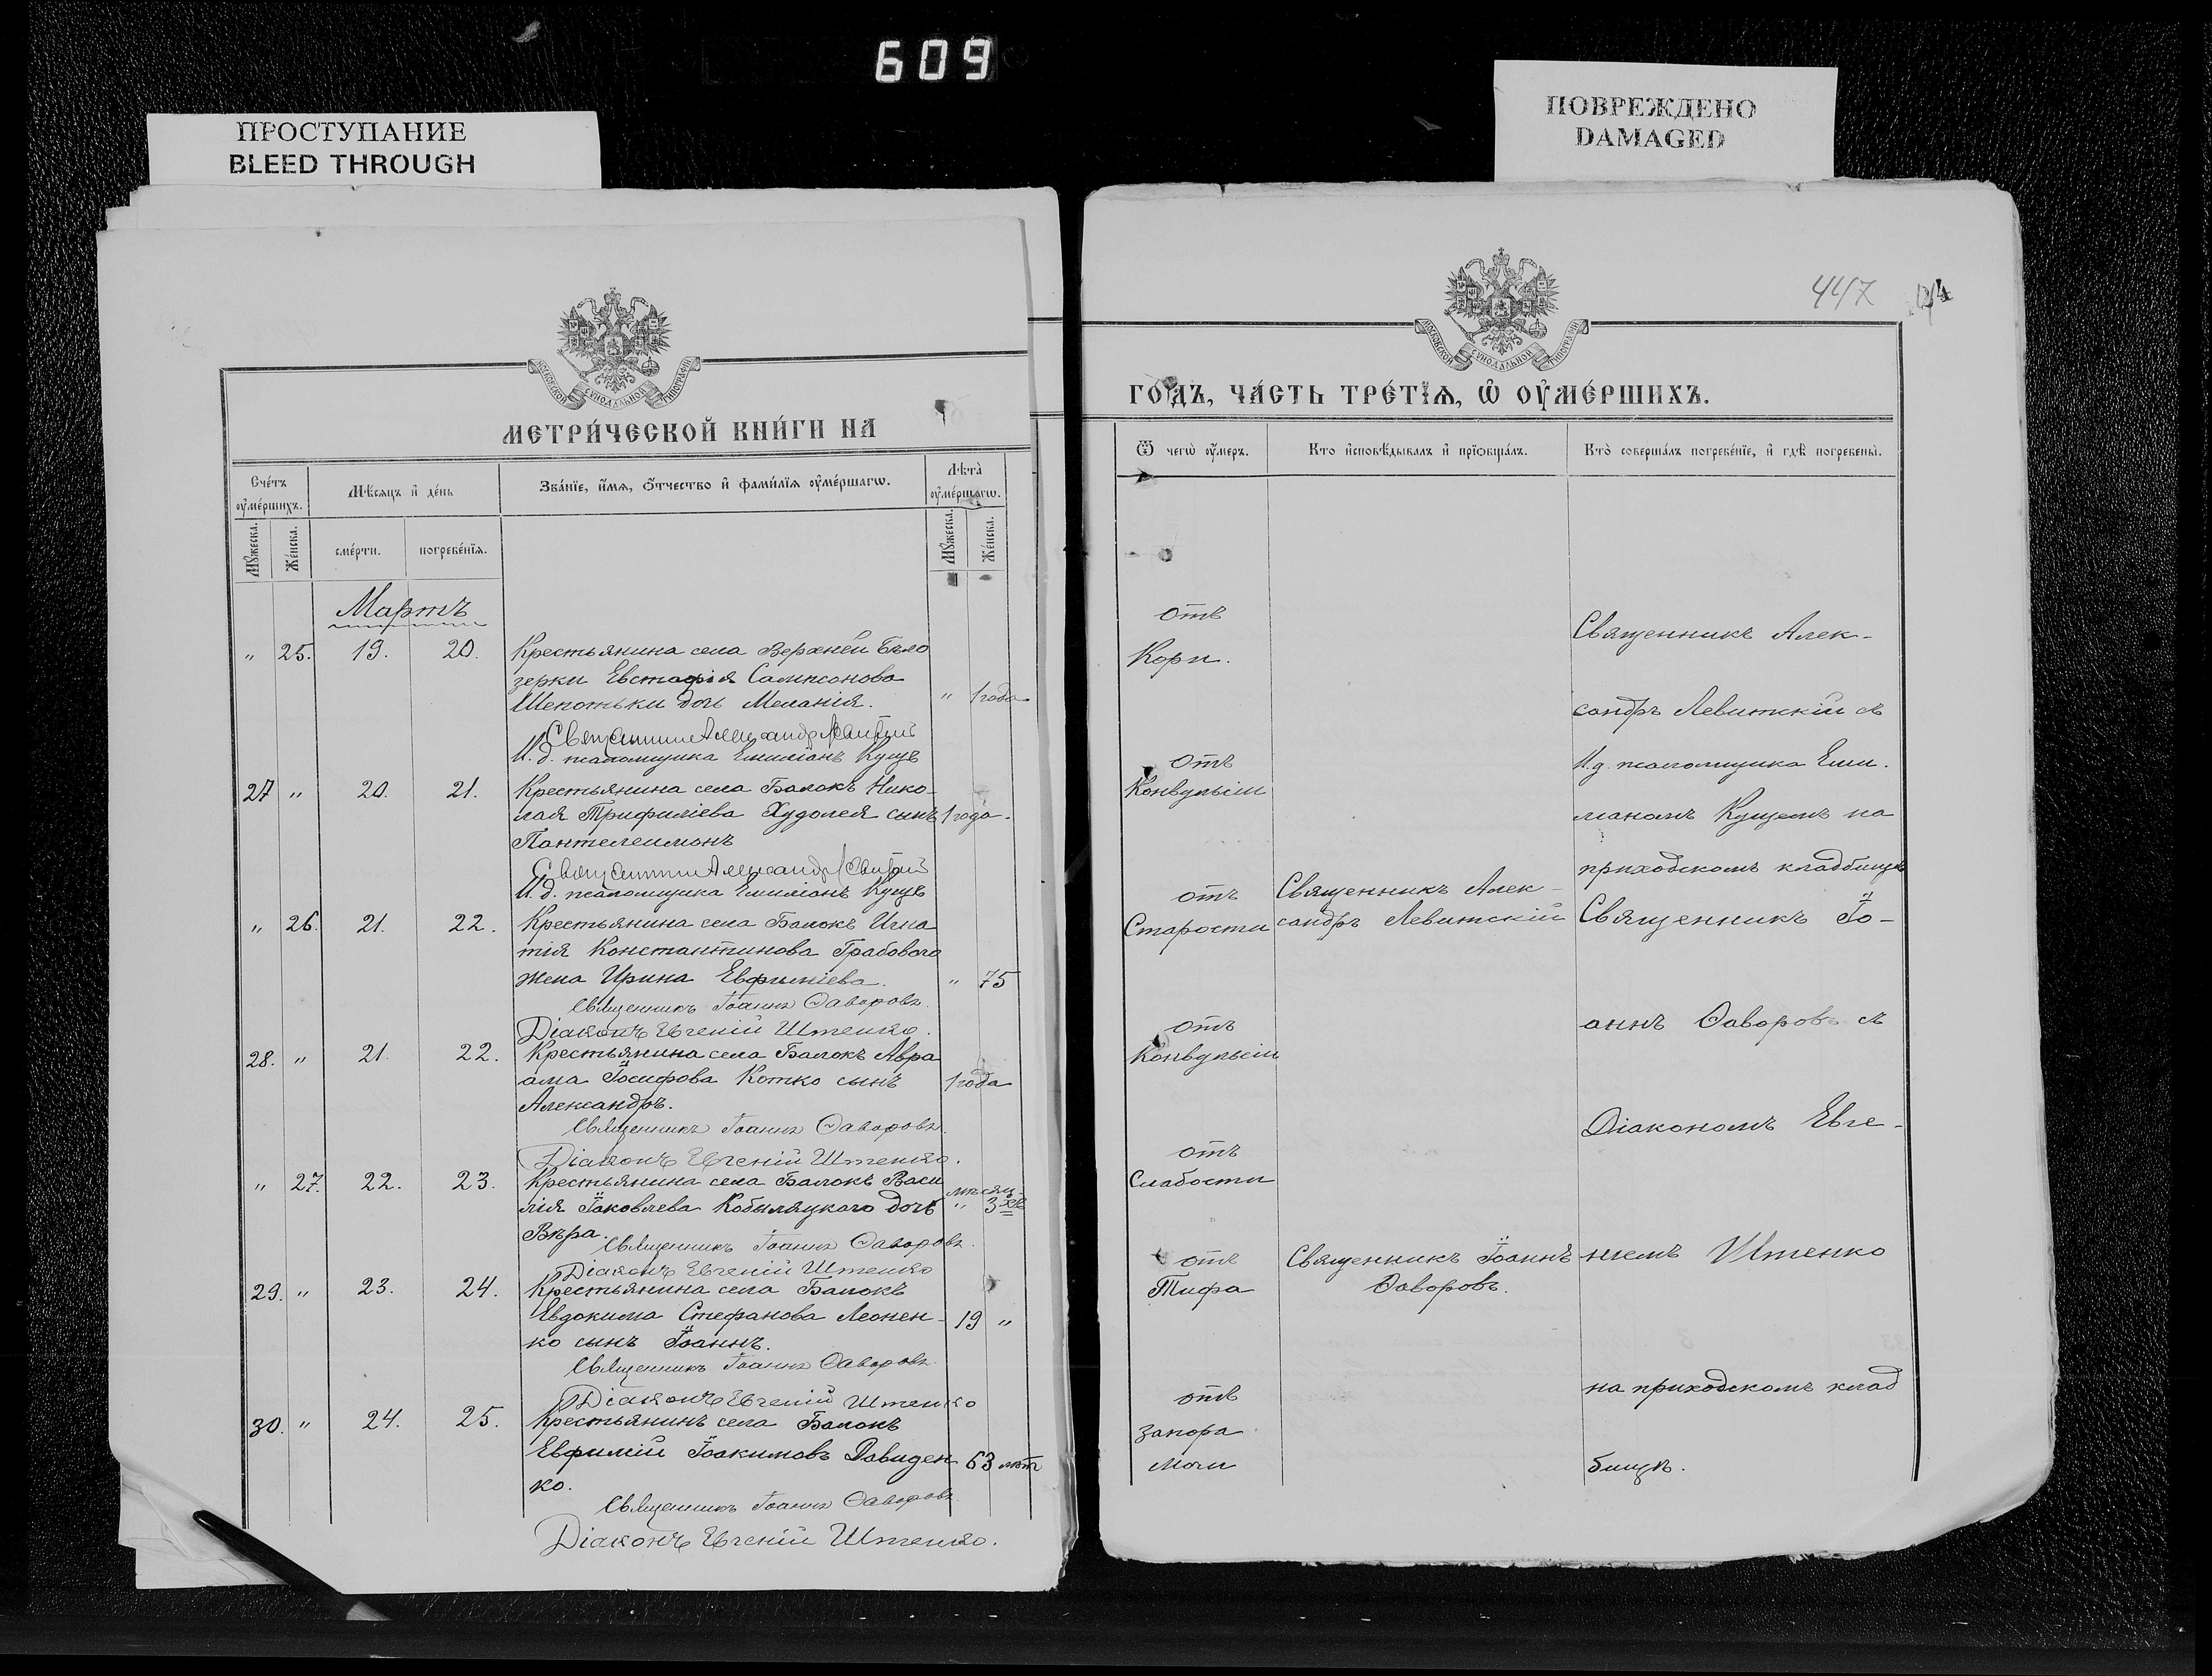 609
ПРОСТУПАНИЕ
BLEED THROUGH
ПОВРЕЖДЕНО
DAMAGED
447
МОСКОВСКОЙ СѴНОДАЛЬНОЙ ТИПОГРАФІИ
МЕТРИ́ЧЕСКОЙ КНИ́ГИ НА
Сче́тъ ᲂу҆ме́ршихъ.
Мѣ́сяцъ и҆ де́нь
Зва́нїе, и҆́мѧ, ѻ҆́тчество и҆ фами́лїѧ ᲂу҆ме́ршагѡ.
Лѣта̀ ᲂу҆ме́ршагѡ.
Мꙋ́жеска.
Же́нска.
сме́рти.
погребе́нїѧ.
Мꙋ́жеска.
Же́нска.
Мартъ
" 25. 19. 20. Крестьянина села Верхней Бѣло
зерки Евстафія Сампсонова
Шепотьки дочь Меланія. " 1 года
Священникъ Александръ Левитскій
И. д. псаломщика Емиліанъ Кущъ
27 " 20. 21. Крестьянина села Балокъ Нико-
лая Трифиліева Худолея сынъ 1 года.
Пантелеимонъ
Священникъ Александръ Левитскій
И. д. псаломщика Емиліанъ Кущъ
" 26. 21. 22. Крестьянина села Балокъ Игна
тія Константинова Грабового
жена Ирина Евфиміева. " 75
Священникъ Іоаннъ Ѳаворовъ.
Діаконъ Евгеній Штенко.
28. " 21. 22. Крестьянина села Балокъ Авра
ама Іосифова Котко сынъ 1 года
Александръ.
Священникъ Іоаннъ Ѳаворовъ.
Діаконъ Евгеній Штенко.
" 27. 22. 23. Крестьянина села Балокъ Васи
лія Іаковлева Кобыляцкаго дочь " мѣсяц. 3хъ
Вѣра.
Священникъ Іоаннъ Ѳаворовъ.
Діаконъ Евгеній Штенко
29. " 23. 24. Крестьянина села Балокъ
Евдокима Стефанова Леонен- 19 "
ко сынъ Іоаннъ.
Священникъ Іоаннъ Ѳаворовъ.
Діаконъ Евгеній Штенко
30. " 24. 25. Крестьянинъ села Балокъ
Евфимій Іоакимовъ Давиден 63 лѣтъ
ко.
Священникъ Іоаннъ Ѳаворовъ.
Діаконъ Евгеній Штенко.
МОСКОВСКОЙ СѴНОДАЛЬНОЙ ТИПОГРАФІИ
ГО́ДЪ, ЧА́СТЬ ТРЕ́ТЇѦ, Ѡ҆ ОУ҆МЕ́РШИХЪ.
Ѿ чегѡ̀ ᲂу҆́меръ.
Кто и҆сповѣ́дывалъ и҆ прїѡбща́лъ.
Кто̀ соверша́лъ погребе́нїе, и҆ гдѣ̀ погребены̀.
отъ
Кори.
Священникъ Алек-
сандръ Левитскій съ
отъ
Конвульсіи
И.д. псаломщика Еми.
ліаномъ Кущемъ на
приходскомъ кладбищѣ
отъ
Старости
Священникъ Алек-
сандръ Левитскій
Священникъ Іо-
аннъ Ѳаворовъ съ
отъ
Конвульсіи
Діакономъ Евге-
отъ
Слабости
отъ
Тифа
Священникъ Іоаннъ
Ѳаворовъ.
ніемъ Штенко
отъ
запора
мочи
на приходскомъ клад
бищѣ.